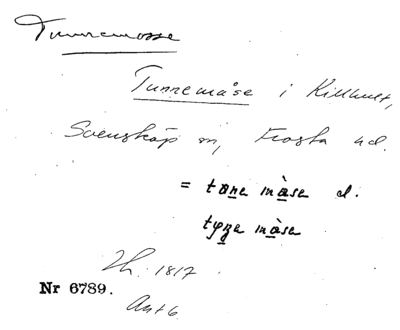 Tunnemosse
Tunnemåse i Killhult,
Svensköp sn, Frosta hd.
= tøne måse d.
tyne måse
Th. 1817
Nr 6789.
Ant 6